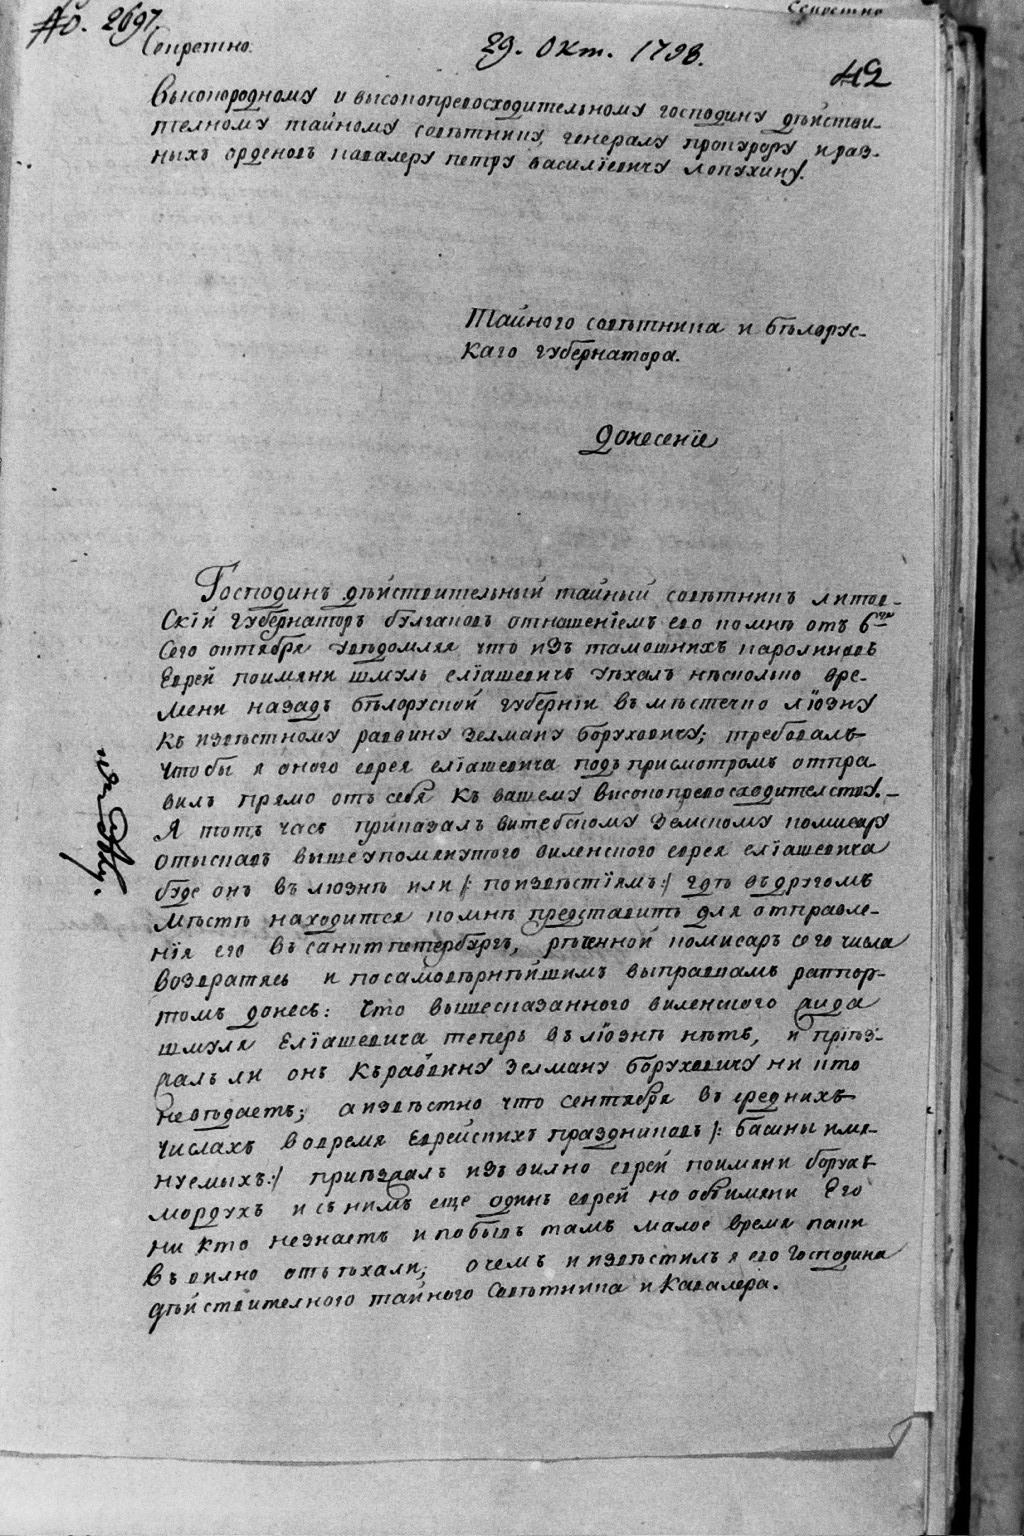 No. 2697
Секретно
Секретно.
29. Окт. 1798.
42
Высокородному и высокопревосходительному господину дѣйстви-
телному тайному совѣтнику, генералу прокурору и раз-
ныхъ орденовъ кавалеру петру василіевичу Лопухину.
Тайного совѣтника и бѣлорус-
каго губернатора.
Донесенїе
Господинъ дѣйствительный тайный совѣтникъ литов-
Скїй губернаторъ булгаковъ отношенїемъ его комнѣ отъ 6го
Сего октября уведомляя что изъ тамошнихъ каролинковъ
Еврей поимяни шмуль елїашевичъ уѣхалъ нѣсколько вре-
мени назадъ бѣлоруской губернїи въ мѣстечко лїозну
къ извѣстному раввину Зелману боруховичу; требовалъ
чтобы я оного еврея елїашевича подъ присмотромъ отпра
вилъ прямо отъ себя къ вашему высокопревосходителству.—
Я тотъ часъ приказалъ витебскому Земскому комисару
отыскавъ вышеупомянутого виленского еврея елїашевича
буде онъ въ люзнѣ или /: поизвѣстїямъ:/ гдѣ въ другомъ
мѣстѣ находится комнѣ представить для отправле-
нїя его въ санктпетербургъ, рѣченной комисаръ сего числа
возвратясь и посамовѣрнѣйшимъ выправкамъ раппор-
томъ донесъ: Что вышесказанного виленского жида
шмуля Елїашевича теперь въ лїознѣ нѣтъ, и прїез-
жалъ ли онъ Къраввину Зелману боруховичу ни кто
невѣдаетъ; а извѣстно что сентября въ среднихъ
числахъ вовремя Еврейскихъ праздниковъ /: басины име-
нуемыхъ:/ приѣзжалъ изъ вилно еврей поимяни борухъ
мордухъ и съ нимъ еще одинъ еврей но обимяни Его
ни кто незнаетъ и побывъ тамъ малое время паки
въ вилно отъѣхали; о чемъ и извѣстилъ я его Господина
дѣйствителного тайного Совѣтника и Кавалера.